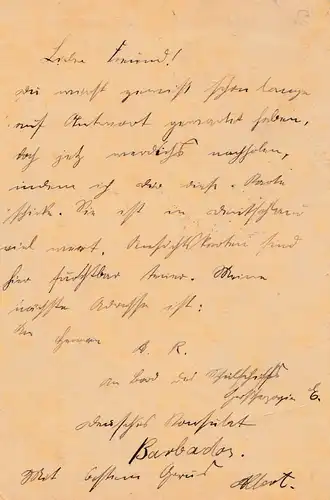 Lieber Freund!
Du wirst gewiß schon lange
auf Antwort gewartet haben,
doch jetz werd ichs nachholen,
indem ich dir diese Karte
schicke. Sie ist in Deutschland
viel wert. Ansichtskarten sind
hier furchtbar teuer. Meine
nächste Adresse ist:
An Herrn
A. R.
an Bord des Schulschiffs
Großherzogin E.
Deutsches Konsulat
Barbados.
Mit bestem Gruß
Albert.